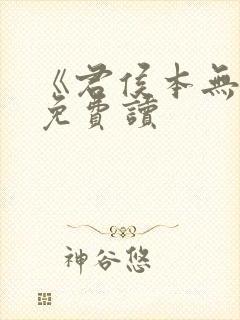 《君侯本無
免費讀
神谷悠